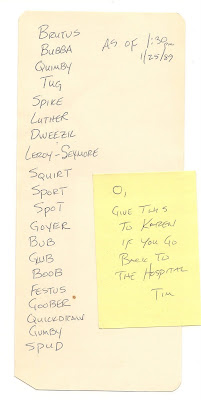 BRUTUS
BUBBA
QUIMBY
TUG
SPIKE
LUTHER
DWEEZIL
LEROY-SEYMORE
SQUIRT
SPORT
SPOT
GOYER
BUB
GUB
BOOB
FESTUS
GOOBER
QUICKDRAW
GUMBY
SPUD
AS OF 1:30pm
1/25/89
O,
GIVE THIS
TO KAREN
IF YOU GO
BACK TO
THE HOSPITAL
TIM